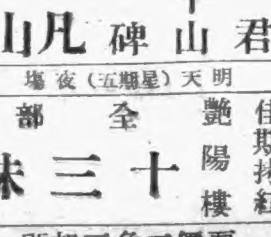 君山碑凡山
明天（星期五）夜塲
佳期拷紅
艷陽樓
全部
十三妹